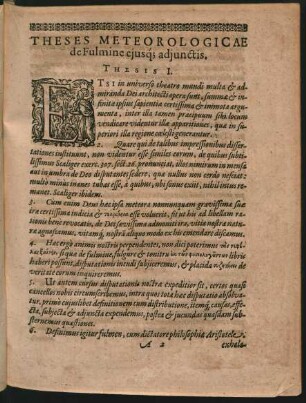 THESES METEOROLOGICAE
de Fulmine ejusq́ adjunctis.
THESIS I.
ETSI in universo theatro mundi multa & ad-
miranda Dei architecti opera sunt, summæ & in-
finitæ ipsius sapientiæ certissima & immota argu-
menta, inter illa tamen præcipuum sibi locum
vendicare videntur illæ apparitiones, quæ in su-
periori illa regione cælesti generantur.
2. Quare qui de talibus impressionibus disser-
tationes instituunt, non videntur esse similes eorum, de quibus subti-
lissimus Scaliger exerc. 307. sect. 28. pronunciat, ultra omnium in mensa
aut in umbra de Deo disputantes sedere, quæ nullius non credo nosse at:
multo minus inanes tubas esse, à quibus, ubi sonus exiit, nihil intus re-
manet. Scaliger ibidem.
3. Cum enim Deus hæc ipsa meteora nonnunquam gravissimæ suæ
iræ certissima indicia & esse voluerit, fit ut his ad libellam ra-
tionis benè revocatis, de Dei sævissima admonitira, vitia nostra natu-
ra agnoscamus, vitamq́, nostrā alioqui modo ex bis emendare discamus.
4. Hæc ergò animis nostris perpendentes, non dici poterimus
fisque de fulmine, fulgure & tonitru in libris
haberi possunt, disputationis incudi subjiceremus, & placida de
veritate eorum inquireremus.
5. Ut autem cursus disputationis nostræ expeditior sit, certis quasi
cancellis nobis circumscribemus, intra quos tota hæc disputatio absolva-
tur. primò cujuslibet definitionem cum distributione, itemq́, causas, effe-
cta, subjecta & adjuncta expendemus, postea & jucundas quasdam sub-
sternemus quæstiones.
6. Definimus igitur fulmen, cum dictatore philosophiæ Aristotele,
A 2 exhala-